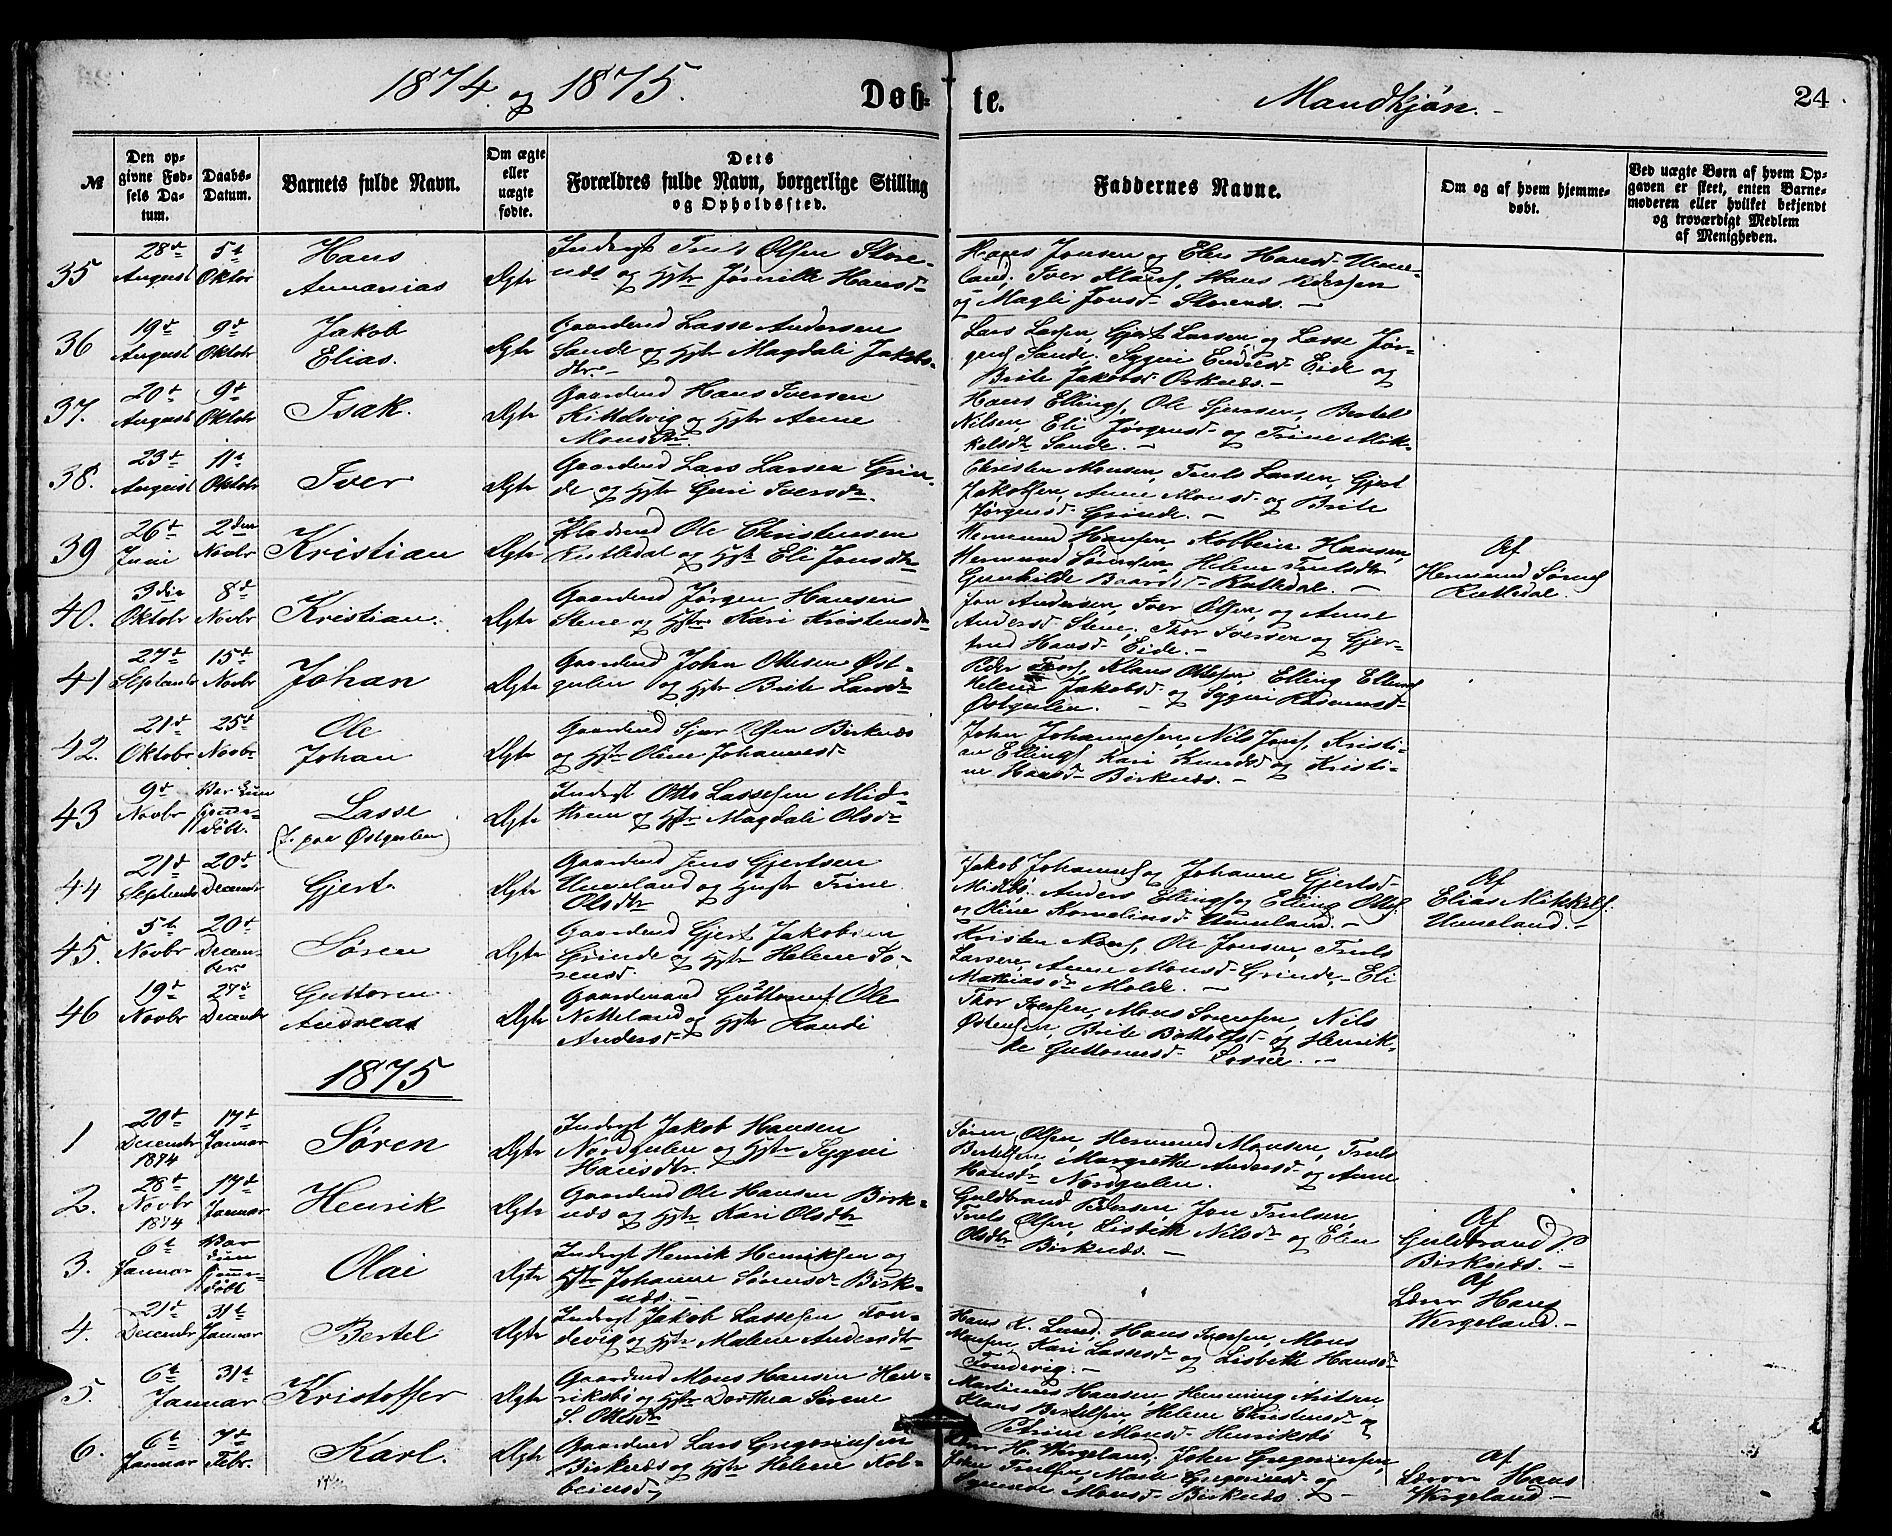 1874. og 1875.
Døb-
te.
Mandkjøn.
24
№
Den op-
givne Fød-
sels Da-
tum.
Daabs-
Datum.
Barnets fulde Navn.
Om ægte
eller
uægte
fødte.
Dets
Forældres fulde Navn, borgerlige Stilling
og Opholdssted.
Faddernes Navne.
Om og af hvem hjemme-
døbt.
Ved uægte Børn af hvem Op-
gaven er skeet, enten Barne-
moderen eller hvilket bekjendt
og troværdigt Medlem
af Menigheden.
35
28de August
5te Oktbr
Hans
Annanias
Ægte
Truls Olsen Store-
næs og Hstr Hansd
Hans Jonsen og Elen Hansd Unne-
land, Iver Klaus, Hans Pedersen
og Magli Jonsd Storenæs. —
36
19de August
9de Oktobr
Jakob
Elias.
Ægte
Gaardmd Lasse Andersen
Sande og Hstr Magdali Jakobs-
dtr. —
Lars Larsen, Gjert Larsen, og Lasse Jør-
gens Sande, Sygni Endresd Eide og
Brite Jakobsd —
37.
20de August
9de Oktobr
Isak.
Ægte
Gaardmd Hans Iversen
og Hstr Anne
Monsdtr.
Hans Ellings, Ole Sjursen, Bertel
Nilsen, Eli Jørgensd og Trine Mik-
kelsdtr Sande. —
38.
23de August
11te Oktobr
Iver
Ægte
Gaardmd Lars Larsen Grin-
de og Hstr Guri Iversdtr.
Christen Monsen, Truls Larsen, Gjert
Jakobsen, Anne Monsd og Brite
Jørgensd Grinde. —
39
26de Juni
2den Novbr
Kristian
Ægte
Pladsmd Ole Christensen
Kutledal og Hstr Eli Jonsdtr
Hermund Hansen, Kolbein Hansen,
Hermund Sørensen, Helene Trulsdtr
Gunhilde Baardsd Kutledal. —
Af
Hermund Sørens
Kutledal.
40.
3die Oktobr
8de Novbr
Kristian.
Ægte
Gaardmd Jørgen Hansen
Stene og Hstr Kari Kristensd
Jon Andersen, Iver Olsen, og Anne
Andersd Stene, Thor Iversen og Gjer-
trud Hansd Eide. —
41
27de Septembr
15de Novbr
Johan
Ægte
Gaardmd John Ottesen Øst-
gulen og Hstr Brite Larsd
Peder Klaus Ottesen, Elling Ellings
Helene Jakobsd og Sygni Rasmusd
Østgulen. —
42.
21de Oktobr
25de Novbr
Ole
Johan
Ægte
Gaardmd Sjur Olsen Birknæs
og Hstr Oline Johannesd
John Johannesen, Nils Jons, Kristi-
an Ellings, Kari Knudsd og Kristi-
ne Hansd Birknæs. —
43
9de Novbr
Bar kun hjemme-
døbt.
Lasse
(f. paa Østgulen)
Ægte
Otto Lassesen Mid-
og Hstr Magdali Olsd
44
21de Septembr
20de Decembr
Gjert
Ægte
Gaardmd Jens Gjertsen
Unneland og Hustr Trine
Olsdtr
Jakob Johannes og Johanne Gjertsd
Anders Ellings og Elling Ottes
og Oline Kornelinsd Unneland. —
Af
Elias Mikkels
Unneland. —
45.
5te Novbr
20de Decem-
ber.
Søren
Ægte
Gaardmd Gjert Jakobsen
Grinde og Hstr Helene Sø-
rensd.
Kristen Mons, Ole Jonsen, Truls
Larsen, Anne Monsd Grinde, — Eli
Mathiasd Molde. —
46
19de Novbr
27de Decembr
Guttorm
Andreas
Ægte
Gaardmand Guttorm Ole
og Hstr Randi
Andersd
Thor Iversen, Mons Sørensen, Nils
Østensen, Brite Bottolfsd og Henrik-
ke Guttormsd —
1875
1
20de Decembr 1874
17de Januar
Søren
Ægte
Jakob Hansen
Nordgulen og Hstr Sygni
Hansdtr.
Søren Olsen, Hermund Monsen, Truls
Bertelsen, Margrethe Andersd og Anne
Hansd Nordgulen.
2.
28de Novbr 1874
17de Januar
Henrik
Ægte
Gaardmd Ole Hansen Birk-
næs og Hstr Kari Olsdtr
Guldbrand Pedersen, Jon Trulsen,
Truls Olsen, Lisbeth Nilsd og Elen
Olsdtr Birknæs. —
Af
Guldbrand P.
Birknæs. —
3.
6te Januar
Bar kun hjemme-
døbt
Olai
Ægte
Henrik Henriksen og
Hstr Johanne Sørensd Birk-
næs. —
Af
Lærer Hans
Wergeland. —
4.
21de Decembr
31te Januar
Bertel
Ægte
Jakob Lassesen Ton-
devig og Hstr Malene Andersdtr
Hans K. Lund, Hans Iversen, Mons
Monsen, Kari Lassesd og Lisbeth Hansd
Tondevig. —
5.
6te
31te
Januar
Kristoffer
Ægte
Gaardmd Mons Hansen Hen-
riksbø og Hstr Dorthea Serene
S. Olsdtr
Martinus Hansen, Henning Antson
Klaus Bertelsen, Helene Christensd og
Petrine Monsd Henriksbø
6.
6te Januar
7de Febr.
Karl.
Ægte
Gaardmd Lars Gregoriussen
Birknæs og Hstr Helene Kol-
beinsd
Lærer H. Wergeland, John Gregoriussen,
John Trulsen, Marte Gregoriusd og
Monsd Birknæs. —
Af
Lærer Hans
Wergeland —